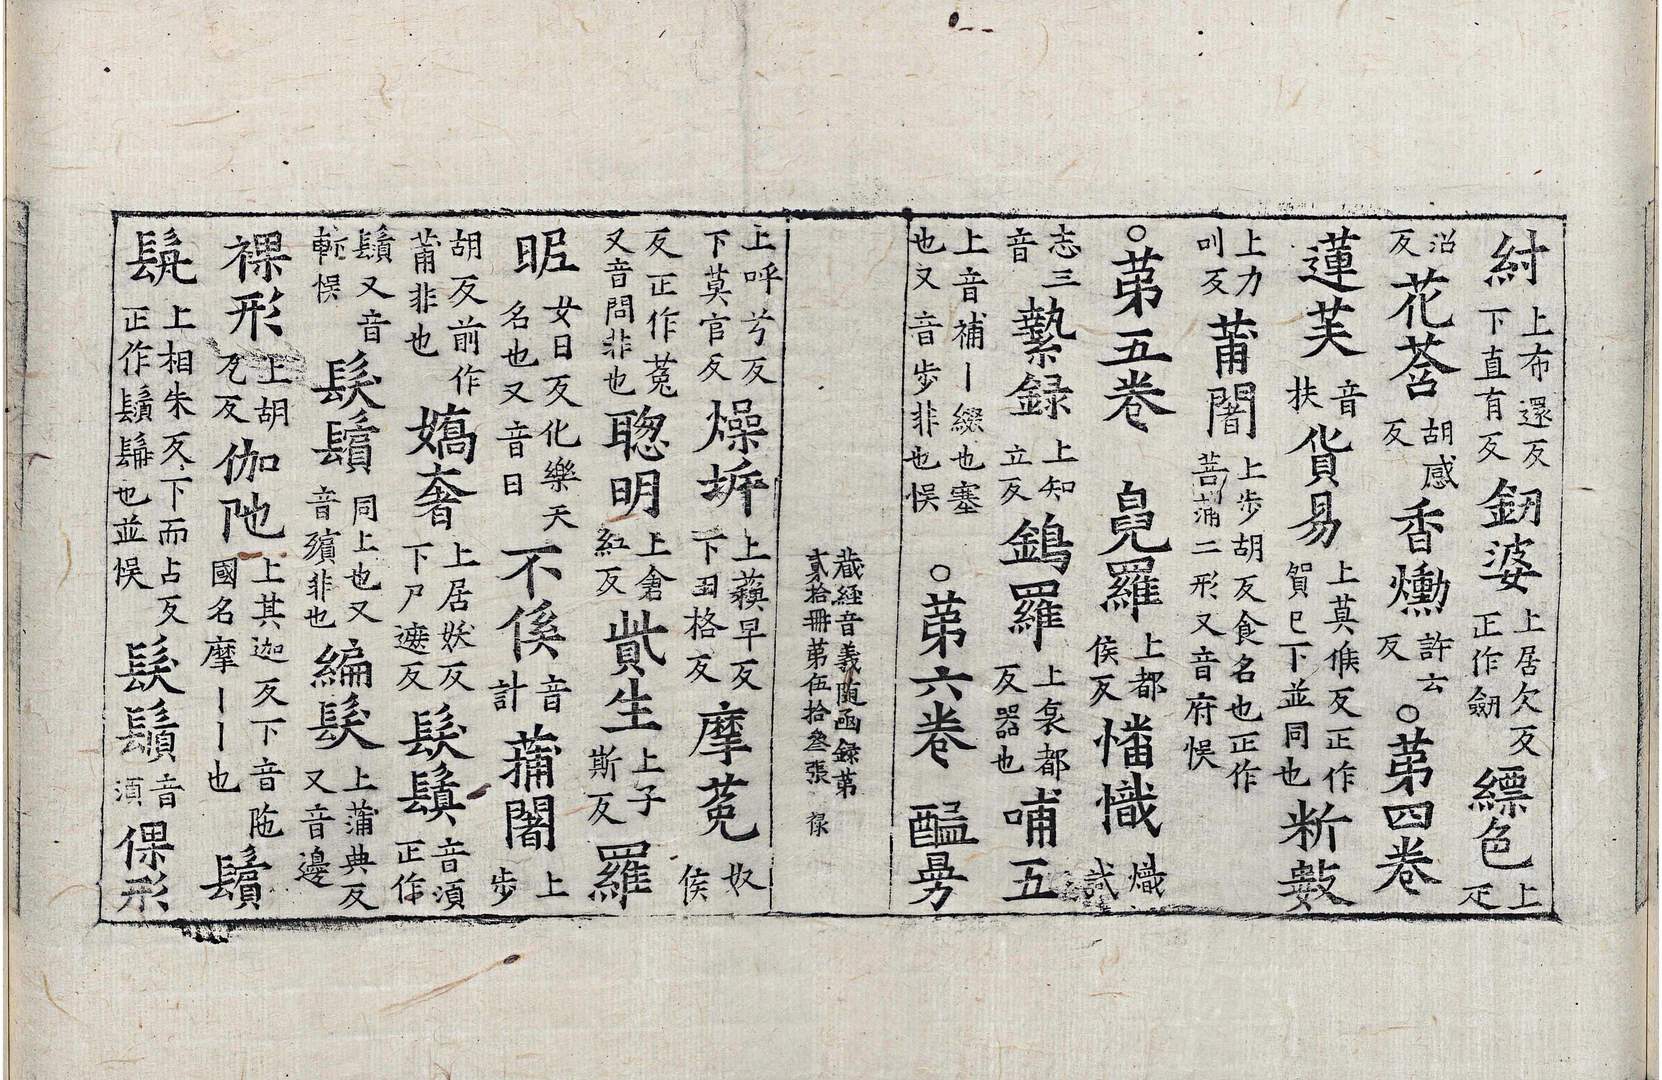 紂上布還反下直有反釰婆上居欠反正作劒縹色上疋
沼反花莟胡感反香爋許云反○苐四卷
蓮芙音扶貨易上莫候反正作貿巳下並同也斵數
上力叫反莆闍上步胡反食名也正作菩蒲二形又音府悮
○苐五卷 㿟羅上都侯反幡幟熾試
志三音縶録上知立反鎢羅上哀都反器也哺五
上音補丨綴也塞也又音步非也悮○苐六卷 醯㫄
藏経音義随函録苐貳拾冊苐伍拾叄張 禄
上呼兮反下莫官反燥坼上蘓早反下丑格反摩㝹奴侯
反正作㝹又音問非也聦明上倉紅反貲生上子斯反羅
昵女日反化樂天名也又音日不傒音計蒲闍上步
胡反前作莆非也嬌奢上居妖反下尸遮反髮鬚音須正作
鬚又音輀悮髮鬢同上也又音殯非也編髮上蒲典反又音邊
裸形上胡瓦反伽阤上其迦反下音陁國名摩丨丨也鬢
髯上相朱反下而占反正作鬚髯也並悮髮鬚音須倮形